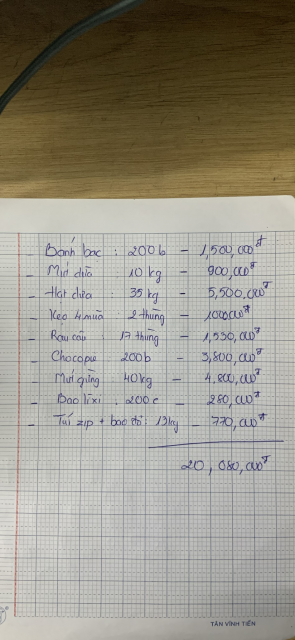 - Bánh bạc : 200b - 1,500,000đ
- Mứt dừa : 10 kg - 900,000đ
- Hạt dưa : 35 kg - 5,500,000đ
- Kẹo 4 mùa : 2 thùng - 1000000đ
- Rau câu : 17 thùng - 1,530,000đ
- Chocopie : 200b - 3,800,000đ
- Mứt gừng : 40kg - 4,800,000đ
- Bao lì xì : 200c - 280,000đ
- Túi zip + bao đỏ : 13kg - 770,000đ
20,080,000đ
TÂN VĨNH TIẾN